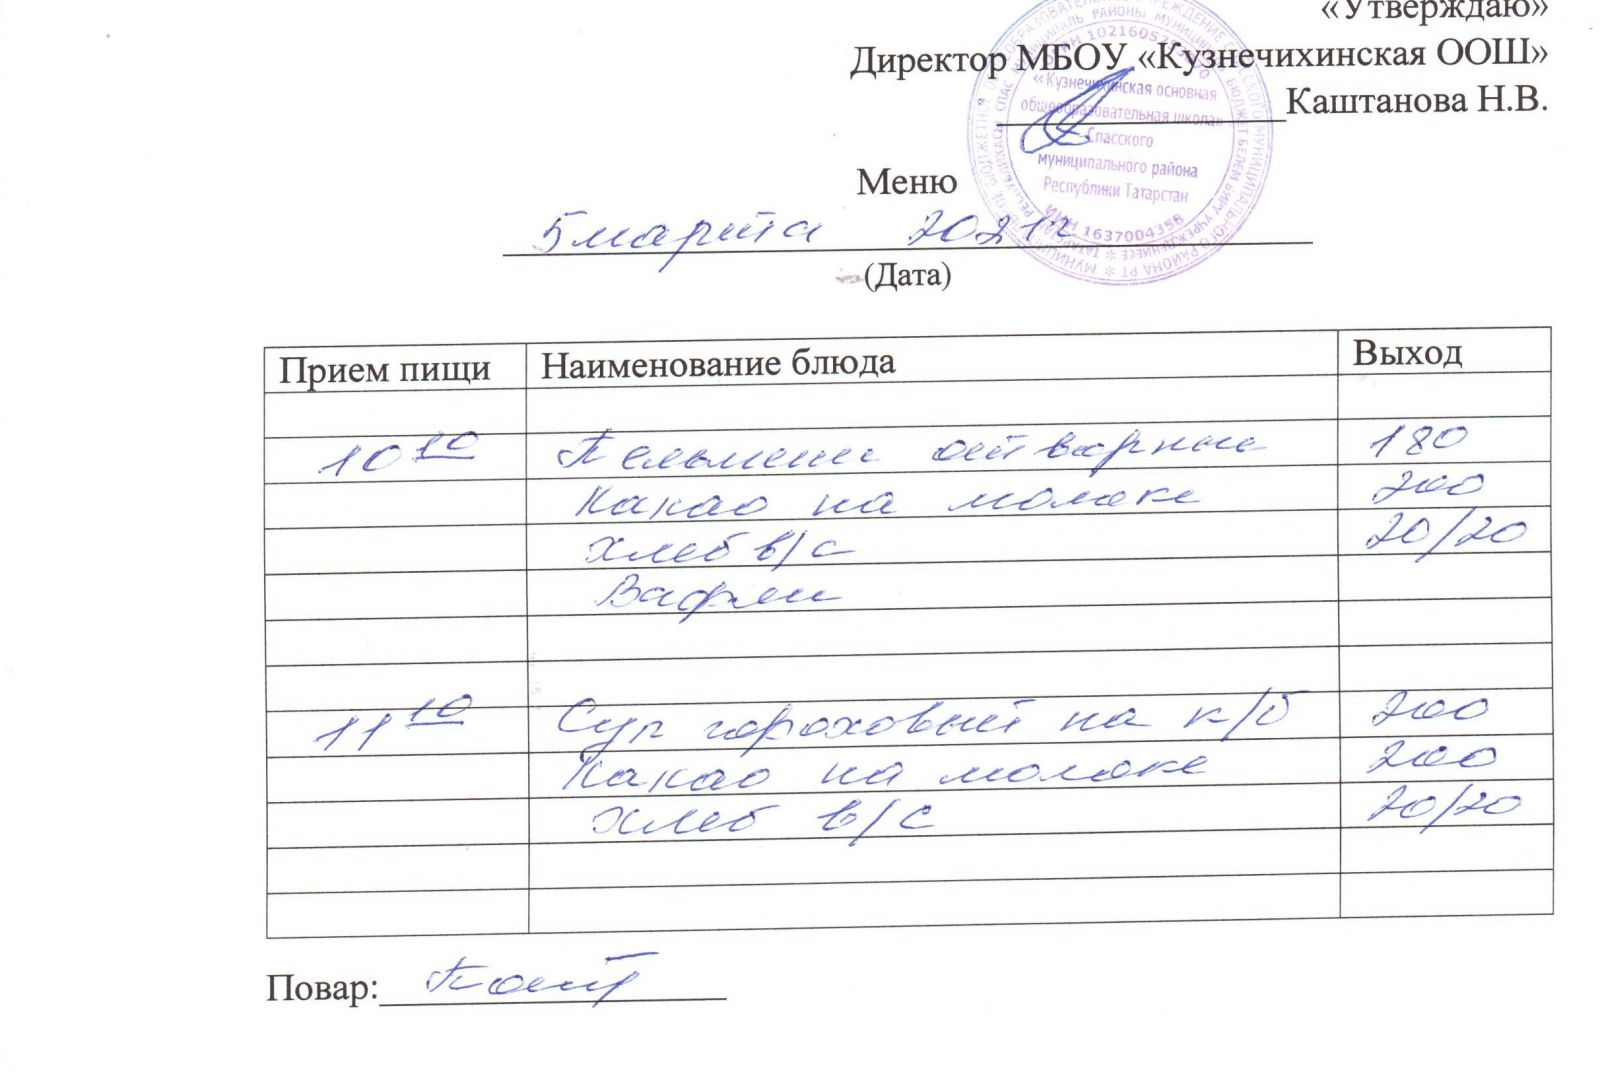 «Утверждаю»
Директор МБОУ «Кузнечихинская ООШ»
Каштанова Н.В.
«Кузнечихинская основная
общеобразовательная школа»
Спасского
муниципального района
Республики Татарстан
ИНН 1637004358
Меню
5 марта 2021г
(Дата)
Прием пищи Наименование блюда Выход
10 10 Пельмени отварные 180
Какао на молоке 200
Хлеб в/с 20/20
Вафли
11 10 Суп гороховый на к/б 200
Какао на молоке 200
Хлеб в/с 20/20
Повар: